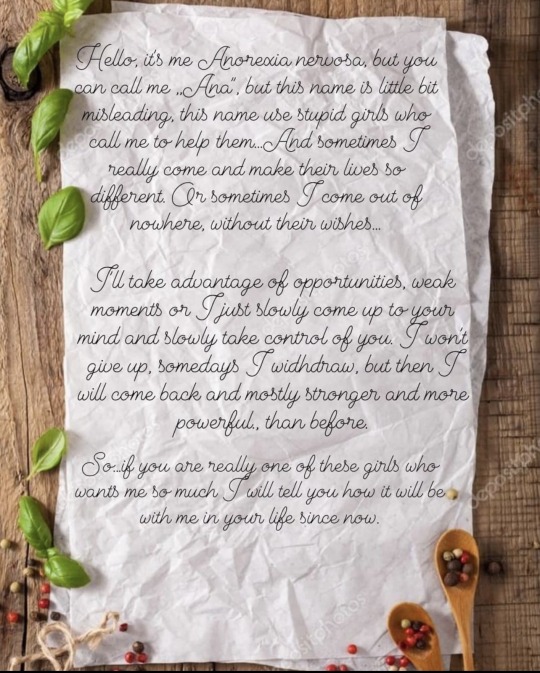 Hello, it's me Anorexia nervosa, but you
can call me ,,Ana", but this name is little bit
misleading, this name use stupid girls who
call me to help them...And sometimes I
really come and make their lives so
different. Or sometimes I come out of
nowhere, without their wishes...
I'll take advantage of opportunities, weak
moments or I just slowly come up to your
mind and slowly take control of you. I won't
give up, somedays I widhdraw, but then I
will come back and mostly stronger and more
powerful,, than before.
So..if you are really one of these girls who
wants me so much I will tell you how it will be
with me in your life since now.
depositphotos